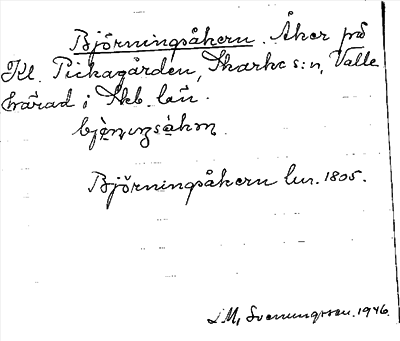 Björningsåkern. Åker på
Kl. Pickagården, Skarke s:n, Valle
härad i Skb. län.
bjö̀ɳɩŋsåkɷɳ.
Björningsåkern lm. 1805.
Svenungsson. 1946.